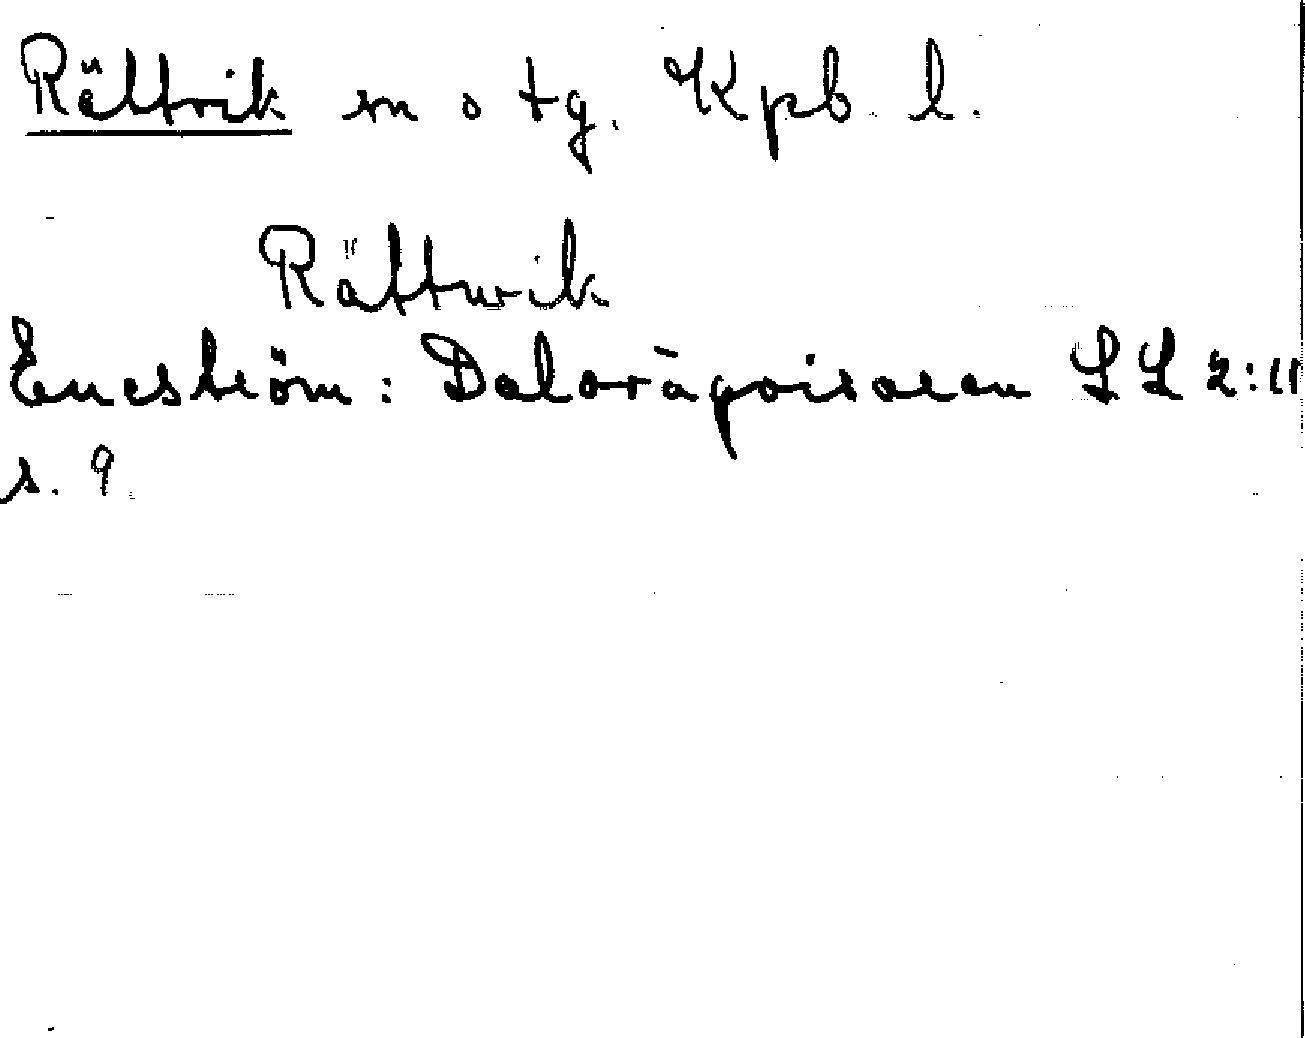 Rättvik sn o tg. Kpb l.
Rättwik
Eneström: Dalavägvisaren SL 2:11
s. 9